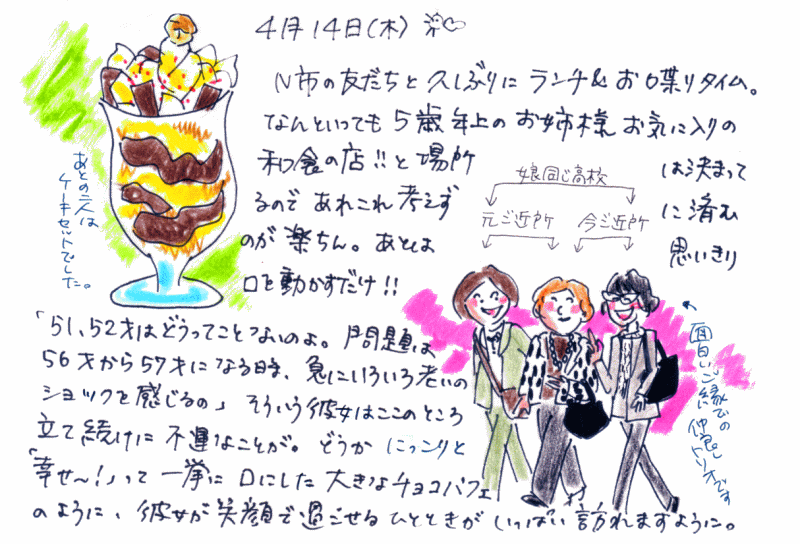 4月14日(木)
N市の友だちと久しぶりにランチ&お喋りタイム。
なんといっても5歳年上のお姉様お気に入りの
和食の店!!と場所は決まって
るのであれこれ考えずに済む
のが楽ちん。あとは思いきり
口を動かすだけ!!
あとの二人は
ケーキセットでした。
娘同じ高校
元ご近所 今ご近所
面白いご縁での
仲良しトリオです
「51、52才はどうってことないのよ。問題は
56才から57才になる時、急にいろいろ老いの
ショックを感じるの」そういう彼女はここのところ
立て続けに不運なことが。どうかにっこりと
「幸せ〜!」って一挙に口にした大きなチョコパフェ
のように、彼女が笑顔で過ごせるひとときがいっぱい訪れますように。